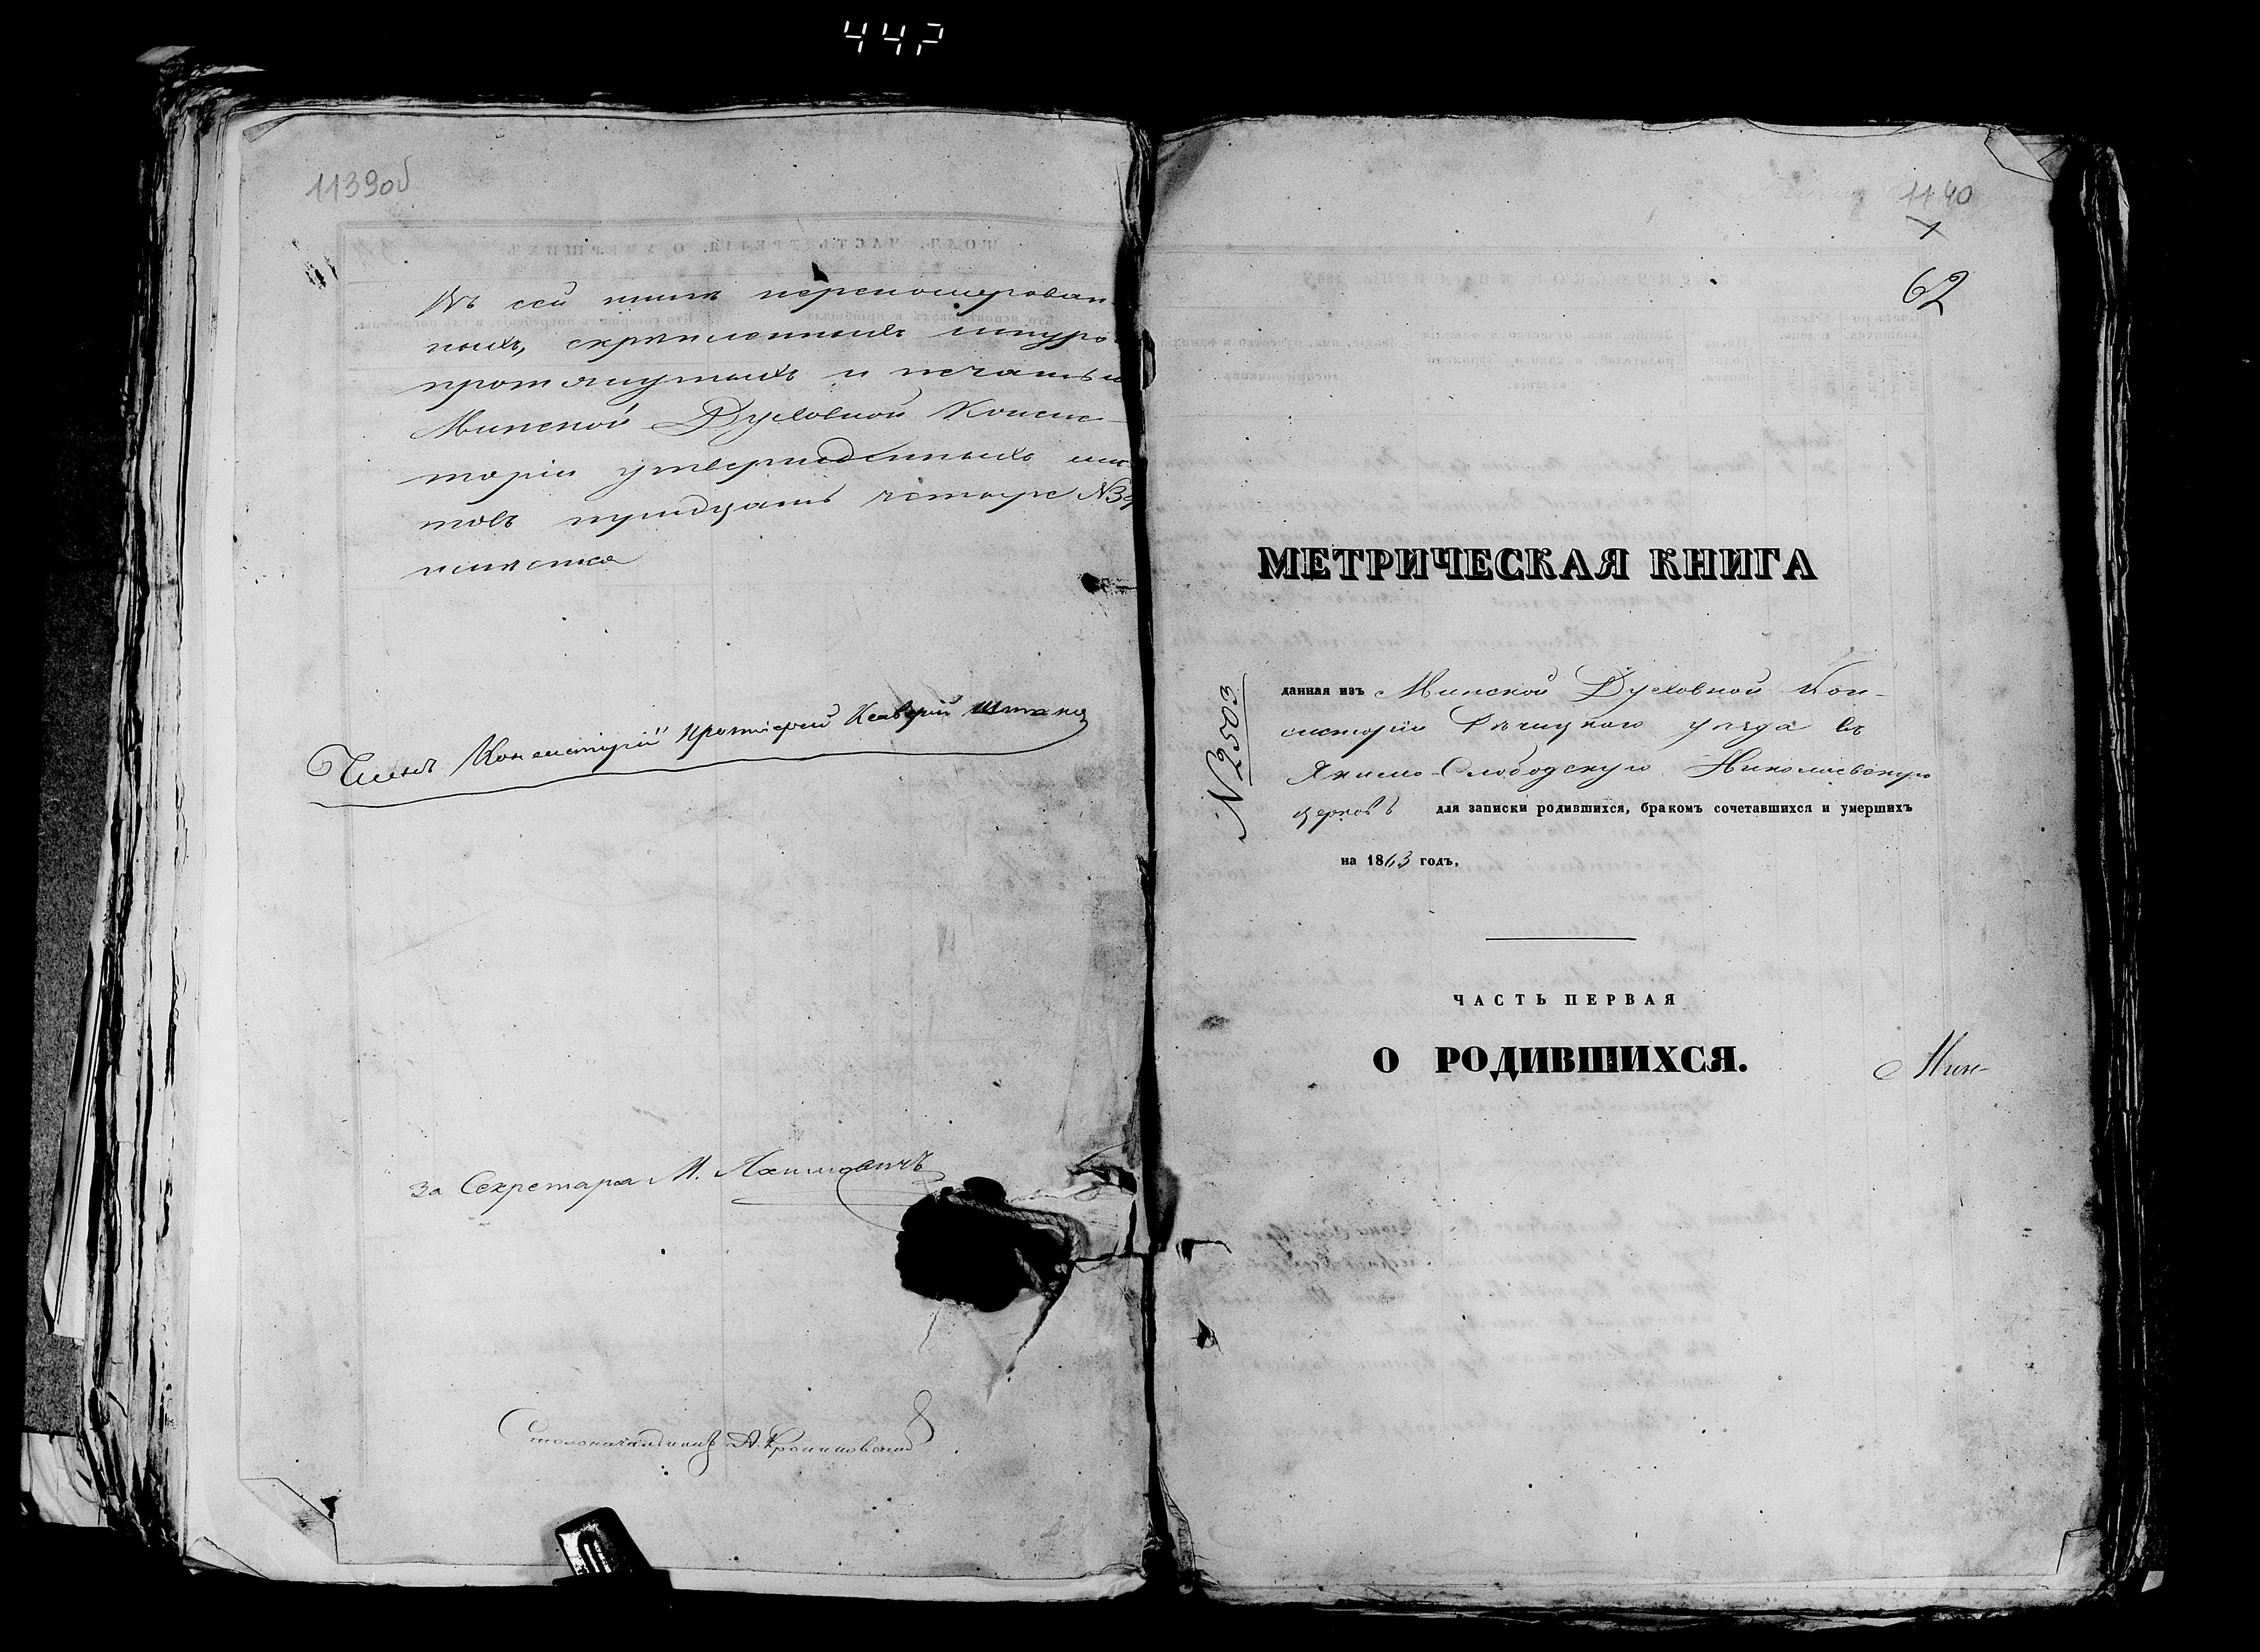 442
1139об
Въ сей книгѣ перенумерован
ныхъ, скрѣпленныхъ шнуро
протянутыхъ и печатью
Минской Духовной Консис-
торіи утвержденныхъ лис
товъ тридцать четыре №34
Членъ Консисторіи Протоіерей
За Секретаря М. Яхимовичъ
Столоначальникъ А.
1140
1
62
МЕТРИЧЕСКАЯ КНИГА
№ 2503
данная изъ Минской Духовной Кон-
систоріи Рѣчицкаго уѣзда въ
Якимо-Слободскую Николаевскую
церковь для записки родившихся, бракомъ сочетавшихся и умершихъ
на 1863 годъ.
ЧАСТЬ ПЕРВАЯ
О РОДИВШИХСЯ.
Мин-